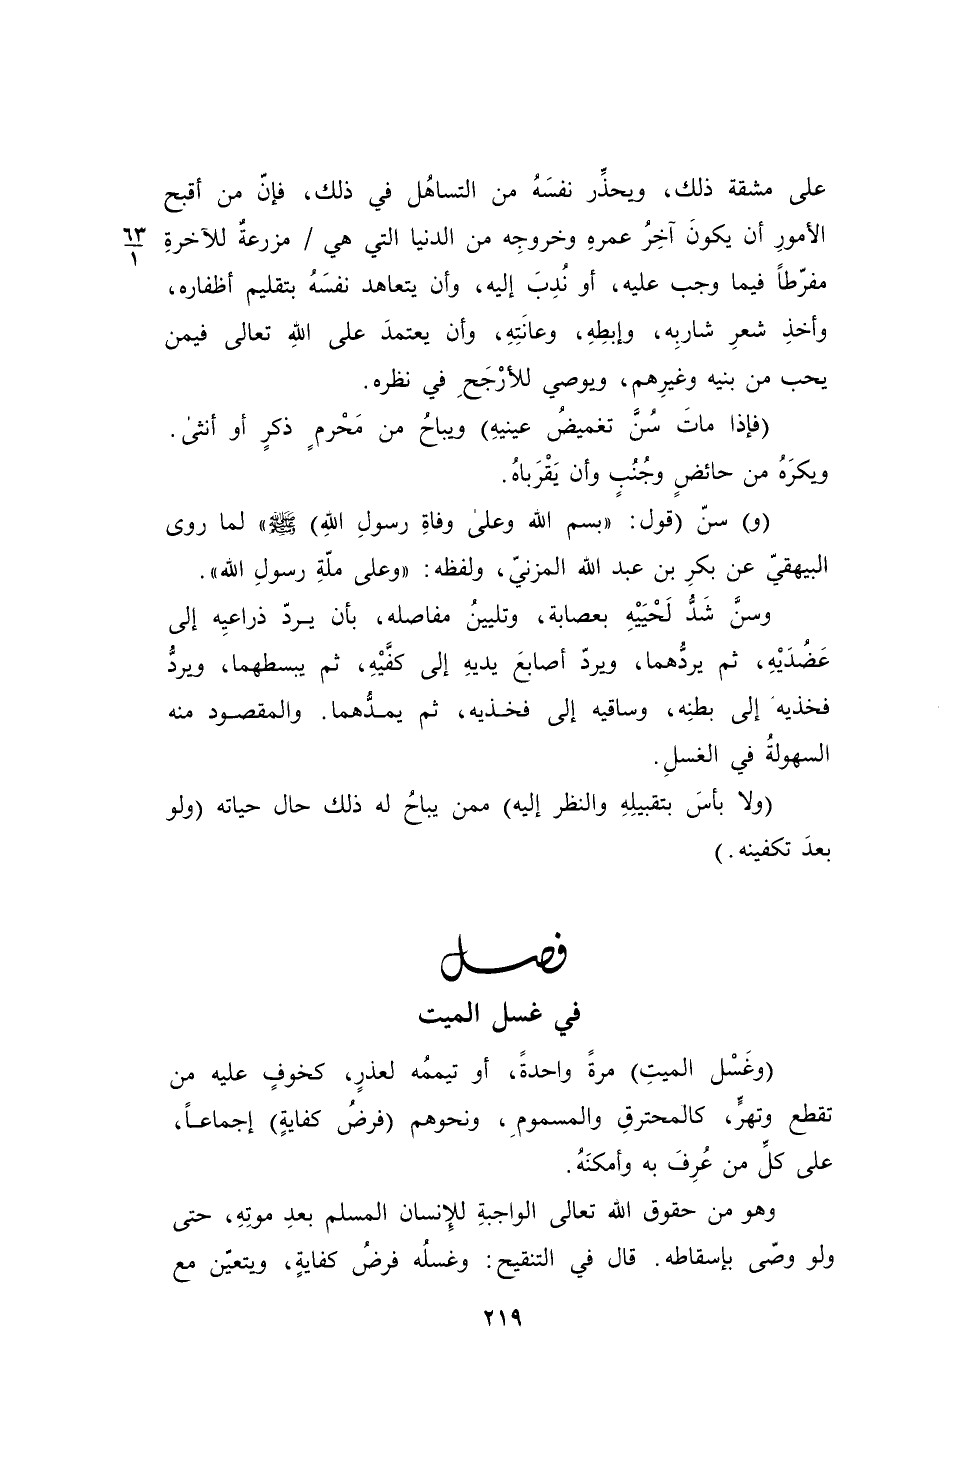 على مشقة ذلك، ويحذِّر نفسَهُ من التساهُل في ذلك، فإنّ من أقبح
الأمورِ أن يكونَ آخِرُ عمرهِ وخروجِه من الدنيا التي هي / مزرعةٌ للآخرةِ ٦٣/١
مفرّطاً فيما وجب عليه، أو نُدِبَ إليه، وأن يتعاهد نفسَهُ بتقليم أظفاره،
وأخذِ شعرِ شاربِه، وإبطِهِ، وعانَتِهِ، وأن يعتمدَ على اللهِ تعالى فيمن
يحب من بنيه وغيرِهم، ويوصي للأرْجَحِ في نظره.
(فإذا ماتَ سُنَّ تغميضُ عينيهِ) ويباحُ من مَحْرمٍ ذكرٍ أو أنثىٰ.
ويكرَهُ من حائضٍ وجُنُبٍ وأن يَقْرَباهُ.
(و) سنّ (قول: «بسم الله وعلىٰ وفاةِ رسولِ اللهِ) ﷺ» لما روى
البيهقيّ عن بكرِ بن عبد الله المزنيّ، ولفظه: «وعلى ملّةِ رسولِ الله».
وسنَّ شَدُّ لَحْيَيْهِ بعصابة، وتليينُ مفاصله، بأن يـردّ ذراعيِه إلى
عَضُدَيْهِ، ثم يردُّهما، ويردّ أصابعَ يديهِ إلى كفَّيْهِ، ثم يبسطهما، ويردُّ
فخذيه إلى بطنِه، وساقيه إلى فخـذيه، ثم يمـدُّهما. والمقصـود منه
السهولةُ في الغسلِ.
(ولا بأسَ بتقبيلِهِ والنظر إليه) ممن يباحُ له ذلك حال حياته (ولو
بعدَ تكفينه.)
فصل
في غسل الميت
(وغَسْل الميتِ) مرةً واحدةً، أو تيممُه لعذرٍ، كخوفٍ عليه من
تقطع وتهرٍّ، كالمحترقِ والمسمومِ، ونحوهم (فرضُ كفايةٍ) إجماعـاً،
على كلِّ من عُرِفَ به وأمكنَهُ.
وهو من حقوق الله تعالى الواجبةِ للإنسان المسلم بعدِ موتِهِ، حتى
ولو وصّى بإسقاطه. قال في التنقيح: وغسلُه فرضُ كفايةٍ، ويتعيّن مع
٢١٩